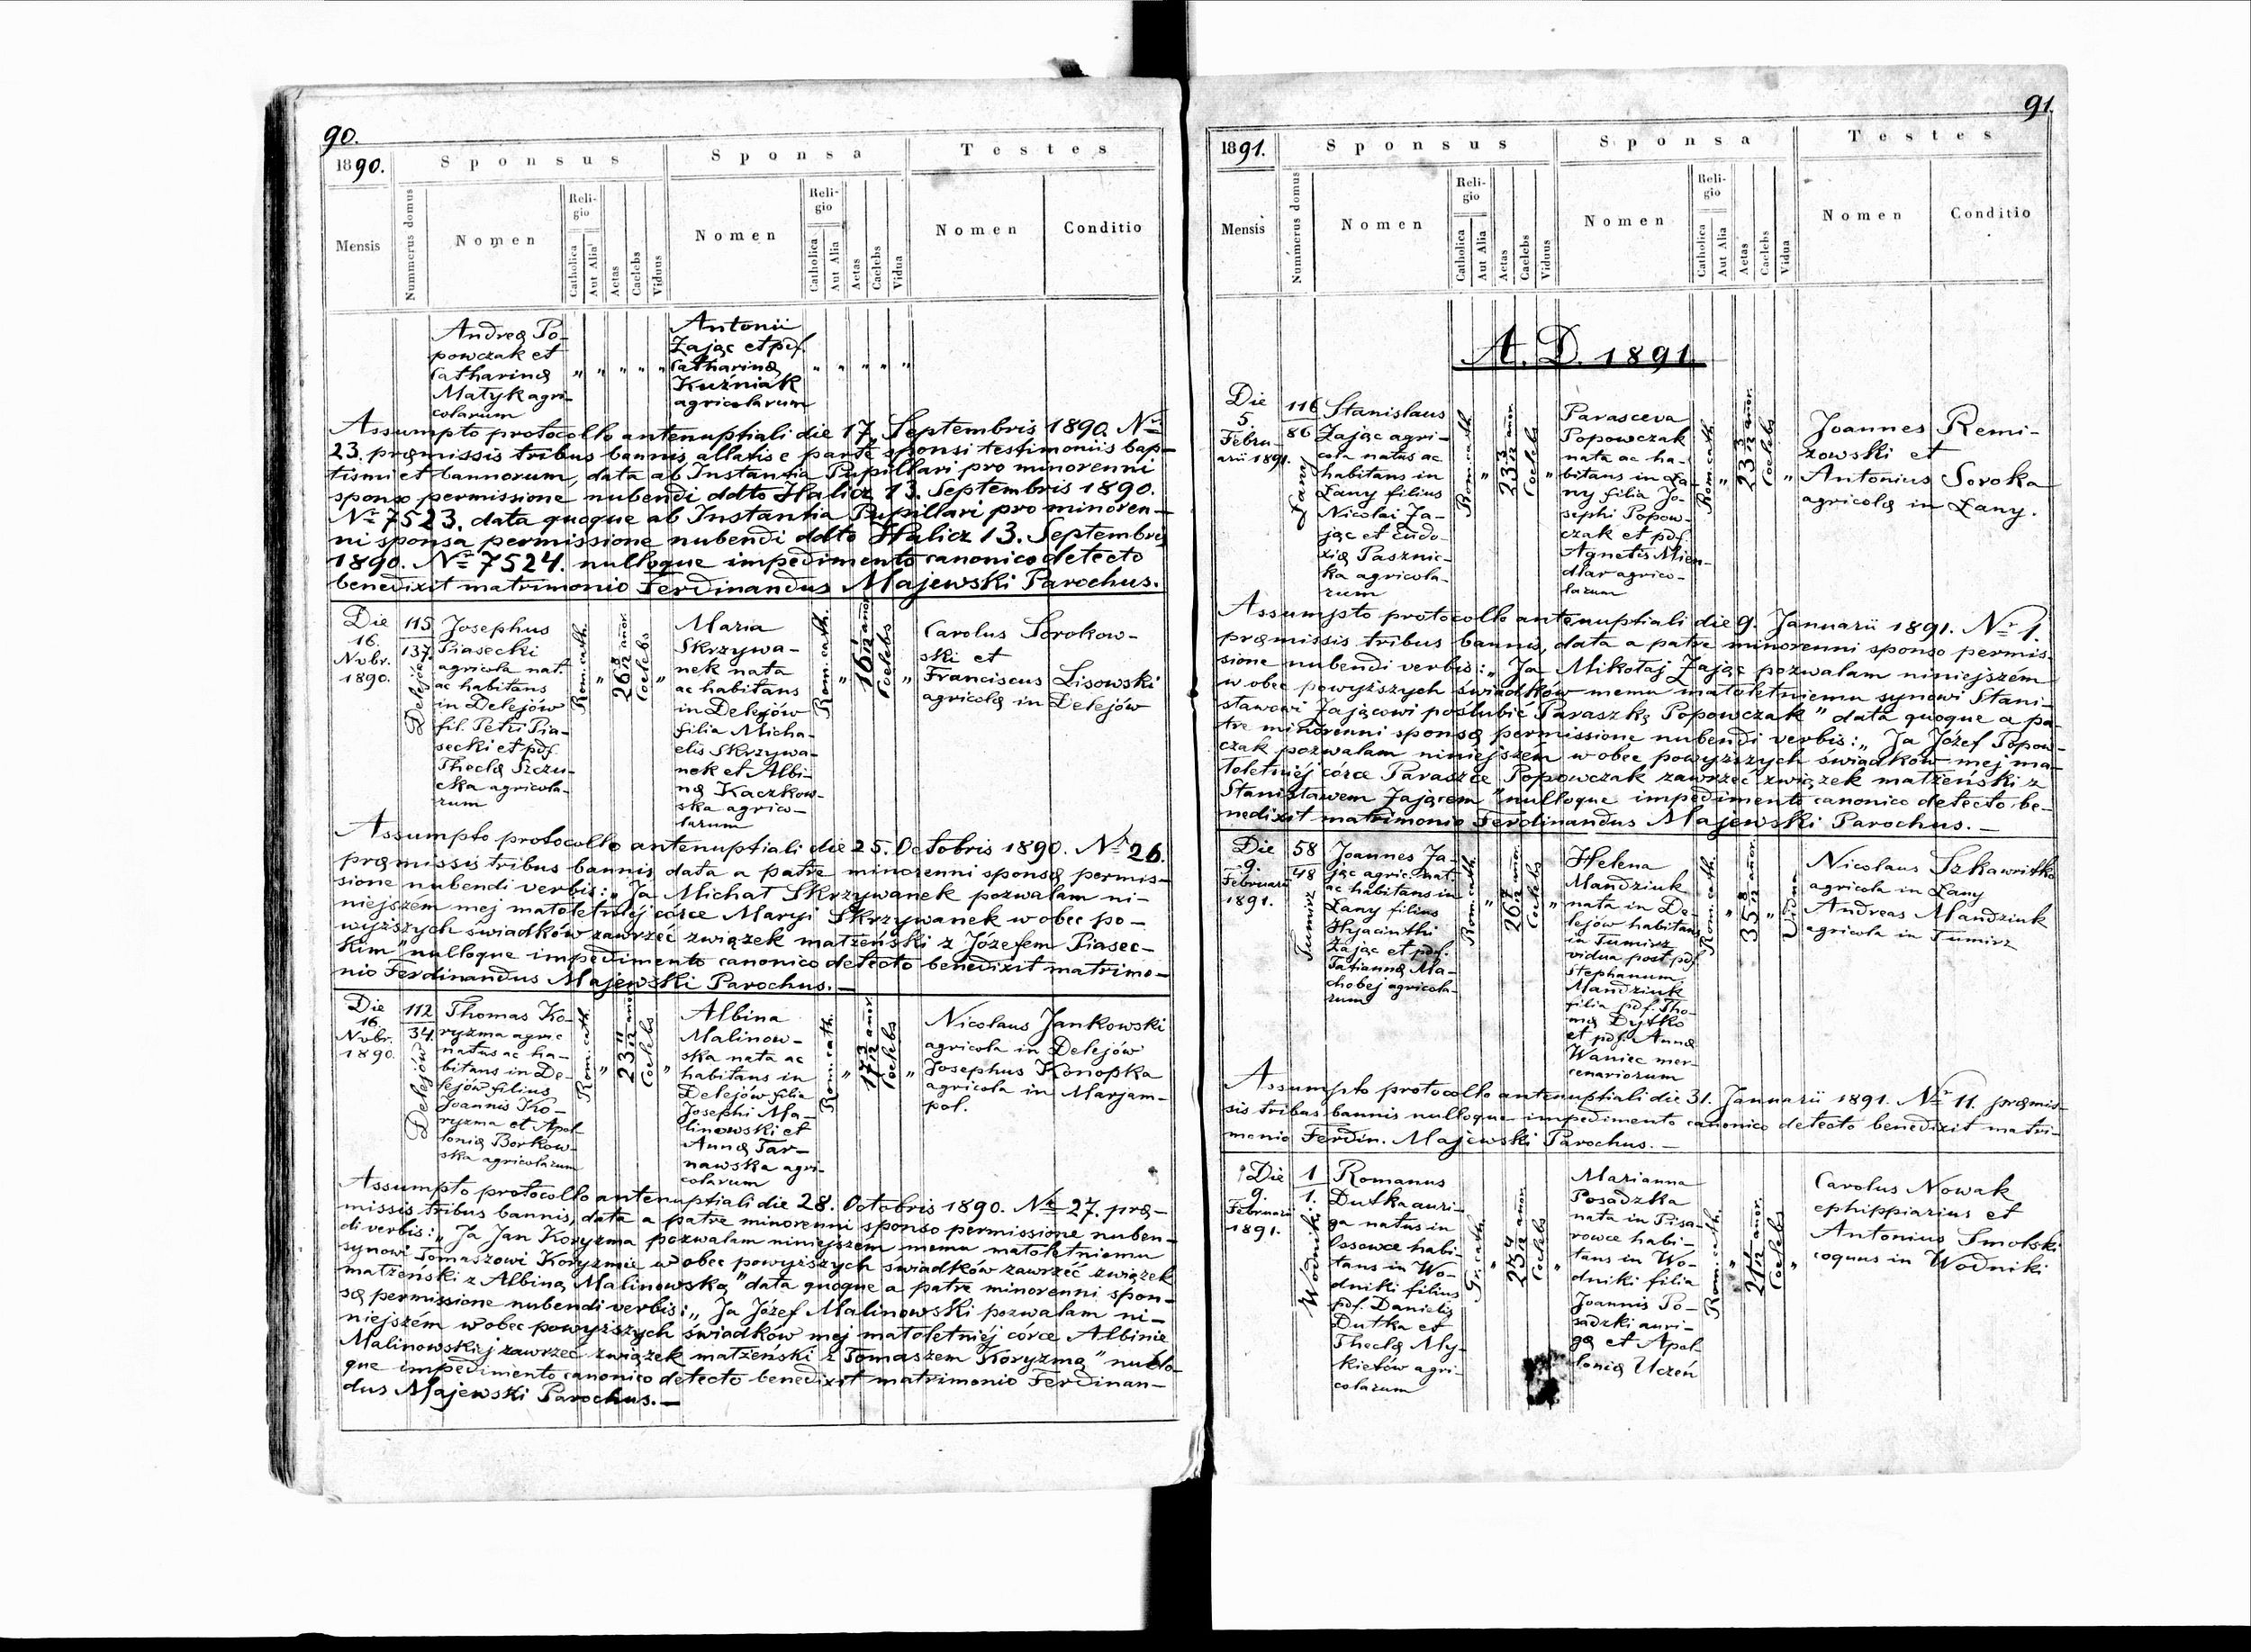 90.
1890.
Sponsus
Sponsa
Testes
Mensis
Nummerus domus
Nomen
Reli-
gio
Catholica
Aut Alia
Aetas
Caelebs
Viduus
Nomen
Reli-
gio
Catholica
Aut Alia
Aetas
Caelebs
Vidua
Nomen
Conditio
Andreæ Po-
powczak et
Catharinæ
Matyk agri-
colarum
" " " " "
Antonii
Zając et pdf.
Catharinæ
Kuźniak
agricolarum
" " " " "
Assumpto protocollo antenuptiali die 17. Septembris 1890. Nr
23. præmissis tribus bannis allatis e parte sponsi testimoniis bap-
tismi et bannorum, data ab Instantia Pupillari pro minorenni
sponso permissione nubendi ddto Halicz 13. Septembris 1890.
Nr 7523. data quoque ab Instantia Pupillari pro minoren-
ni sponsa permissione nubendi ddto Halicz 13. Septembris
1890. Nr 7524. nulloque impedimento canonico detecto
benedixit matrimonio Ferdinandus Majewski Parochus.
Die
16.
Nvbr.
1890.
115
137.
Delejów
Josephus
Piasecki
agricola nat.
ac habitans
in Delejów
fil. Petri Pia-
secki et pdf.
Theclæ Szczu-
cka agricola-
rum
Rom. cath.
"
26 8/12 anor.
Coelebs
"
Maria
Skrzywa-
nek nata
ac habitans
in Delejów
filia Micha-
elis Skrzywa-
nek et Albi-
næ Kaczkow-
ska agrico-
larum
Rom. cath.
"
anor.
Coelebs
"
Carolus Sorokow-
ski et
Franciscus Lisowski
agricolæ in Delejów
Assumpto protocollo antenuptiali die 25. Octobris 1890. Nr 26.
præmissis tribus bannis, data a patre minorenni sponsæ permis-
sione nubendi verbis: „Ja Michał Skrzywanek pozwalam ni-
niejszém mej małoletniéj córce Maryi Skrzywanek w obec po-
wyższych świadków zawrzéć związek małżeński z Józefem Piasec-
kim" nulloque impedimento canonico detecto benedixit matrimo-
nio Ferdinandus Majewski Parochus.—
Die
16.
Nvbr.
1890.
112
34.
Delejów
Thomas Ko-
ryzma agric
natus ac ha-
bitans in De-
lejów filius
Joannis Ko-
ryzma et Apol-
loniæ Borkow-
ska agricolarum
Rom. cath.
"
23 11/12 anor
Coelebs
"
Albina
Malinow-
ska nata ac
habitans in
Delejów filia
Josephi Ma-
linowski et
Annæ Tar-
nawska agri-
colarum
Rom. cath.
"
17 3/12 anor
Coelebs
"
Nicolaus Jankowski
agricola in Delejów
Josephus Konopka
agricola in Marjam-
pol.
Assumpto protocollo antenuptiali die 28. Octobris 1890. Nr 27. præ-
missis tribus bannis, data a patre minorenni sponso permissione nuben-
di verbis: „Ja Jan Koryzma pozwalam niniejszém memu małoletniemu
synowi Tomaszowi Koryzmie w obec powyższych świadków zawrzéć związek
małżeński z Albiną Malinowską" data quoque a patre minorenni spon-
sæ permissione nubendi verbis: „Ja Józef Malinowski pozwalam ni-
niejszém w obec powyższych świadków mej małoletniéj córce Albinie
Malinowskiej zawrzeć związek małżeński z Tomaszem Koryzmą" nullo-
que impedimento canonico detecto benedixit matrimonio Ferdinan-
dus Majewski Parochus.—
91.
1891.
Sponsus
Sponsa
Testes
Mensis
Nummerus domus
Nomen
Reli-
gio
Catholica
Aut Alia
Aetas
Caelebs
Viduus
Nomen
Reli-
gio
Catholica
Aut Alia
Aetas
Caelebs
Vidua
Nomen
Conditio
A. D. 1891.
Die
5.
Febru-
arii 1891.
116
86
Łany
Stanislaus
Zając agri-
cola natus ac
habitans in
Łany filius
Nicolai Za-
jąc et Eudo-
xiæ Pasznic-
ka agricola-
rum
Rom. cath.
"
23 3/12 anor.
Coelebs
"
Parasceva
Popowczak
nata ac ha-
bitans in Ła-
ny filia Jo-
sephi Popow-
czak et pdf.
Agnetis Mien-
dlar agrico-
larum
Rom. cath.
"
23 3/12 anor.
Coelebs
"
Joannes Remi-
zowski et
Antonius Soroka
agricolæ in Łany.
Assumpto protocollo antenuptiali die 9. Januarii 1891. Nr 1.
præmissis tribus bannis, data a patre minorenni sponso permis-
sione nubendi verbis: „Ja Mikołaj Zając pozwalam niniejszém
w obec powyższych świadków memu małoletniemu synowi Stani-
sławowi Zającowi poślubić Paraszkę Popowczak" data quoque a pa-
tre minorenni sponsæ permissione nubendi verbis: „Ja Józef Popow-
czak pozwalam niniejszém w obec powyższych świadków mej ma-
łoletniéj córce Paraszce Popowczak zawrzeć związek małżeński z
Stanisławem Zającem" nulloque impedimento canonico detecto be-
nedixit matrimonio Ferdinandus Majewski Parochus.—
Die
9.
Februarii
1891.
58
48
Tumirz
Joannes Za-
jąc agric. nat.
ac habitans in
Łany filius
Hyacinthi
Zając et pdf.
Tatiannæ Ma-
chobej agricola-
rum
Rom. cath.
"
26 7/12 anor.
Coelebs
"
Helena
Mandziuk
nata in De-
lejów habitans
in Tumirz
vidua post pdf.
Stephanum
Mandziuk
filia pdf. Tho-
mæ Dytko
et pdf. Annæ
Waniec mer-
cenariorum
Rom. cath.
"
35 8/12 anor.
"
Vidua
Nicolaus Szkawritko
agricola in Łany
Andreas Mandziuk
agricola in Tumirz
Assumpto protocollo antenuptiali die 31. Januarii 1891. Nr 11. præmis-
sis tribus bannis nulloque impedimento canonico detecto benedixit matri-
monio Ferdin. Majewski Parochus.—
Die
9.
Februarii
1891.
1
1.
Wodniki
Romanus
Dutka auri-
ga natus in
Ossowce habi-
tans in Wo-
dniki filius
pdf. Danielis
Dutka et
Theclæ My-
kietów agri-
colarum
Gr. cath.
"
25 4/12 anor.
Coelebs
"
Marianna
Posadzka
nata in Pisa-
rowce habi-
tans in Wo-
dniki filia
Joannis Po-
sadzki auri-
gæ et Apol-
loniæ Uczeń
Rom. cath.
"
anor.
Coelebs
"
Carolus Nowak
ephippiarius et
Antonius Smolski
coquus in Wodniki